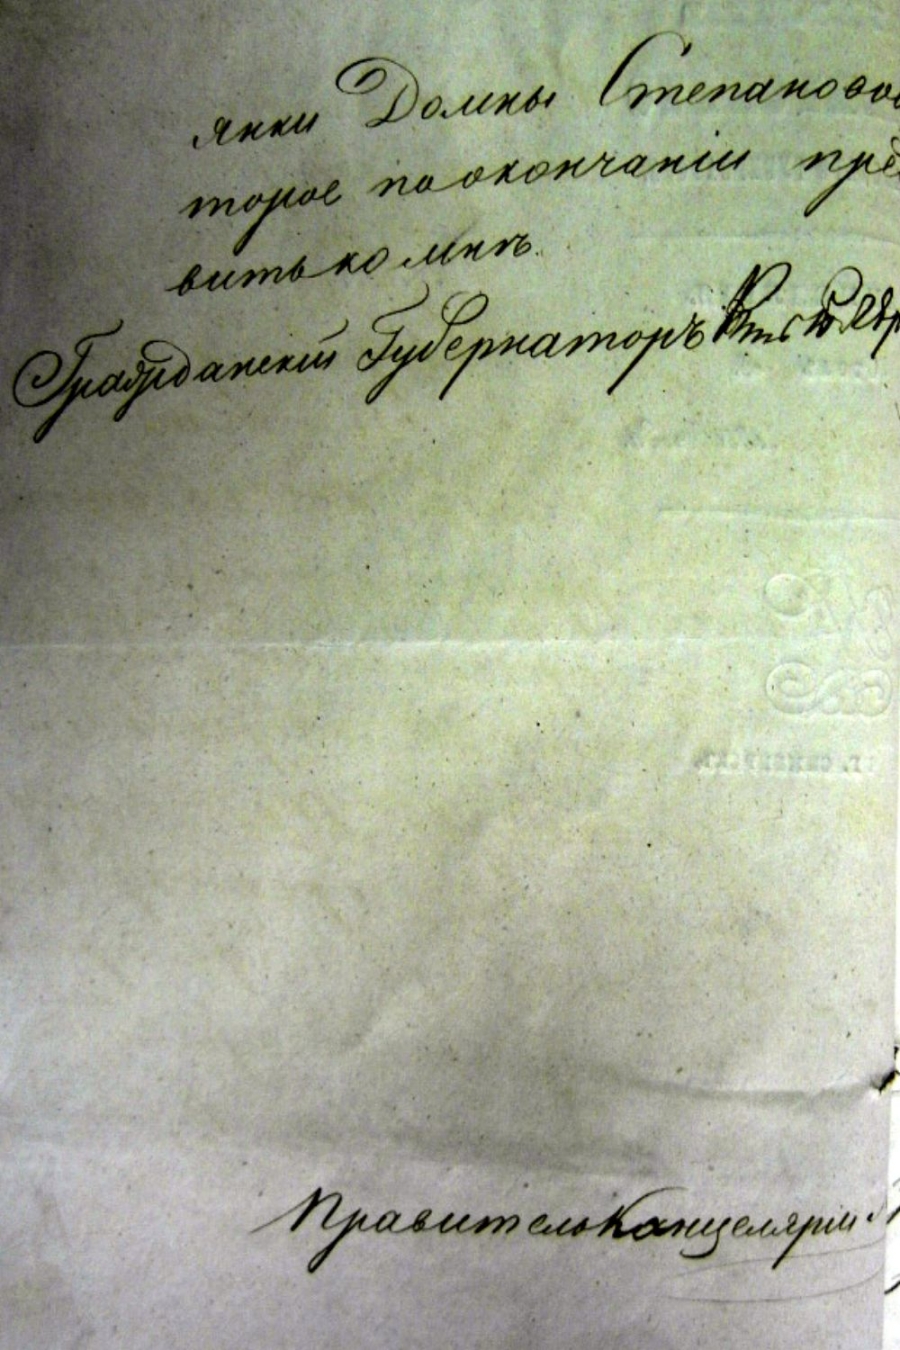 янки Домны Степановой
торое по окончаніи пред
вить ко мнѣ.
Гражданскій Губернаторъ
Правитель Канцеляріи
г. Симбирскъ.